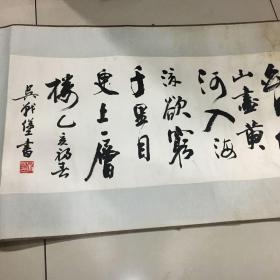 山盡黃
河入海
流欲窮
千里目
更上一層
樓乙亥初春
書